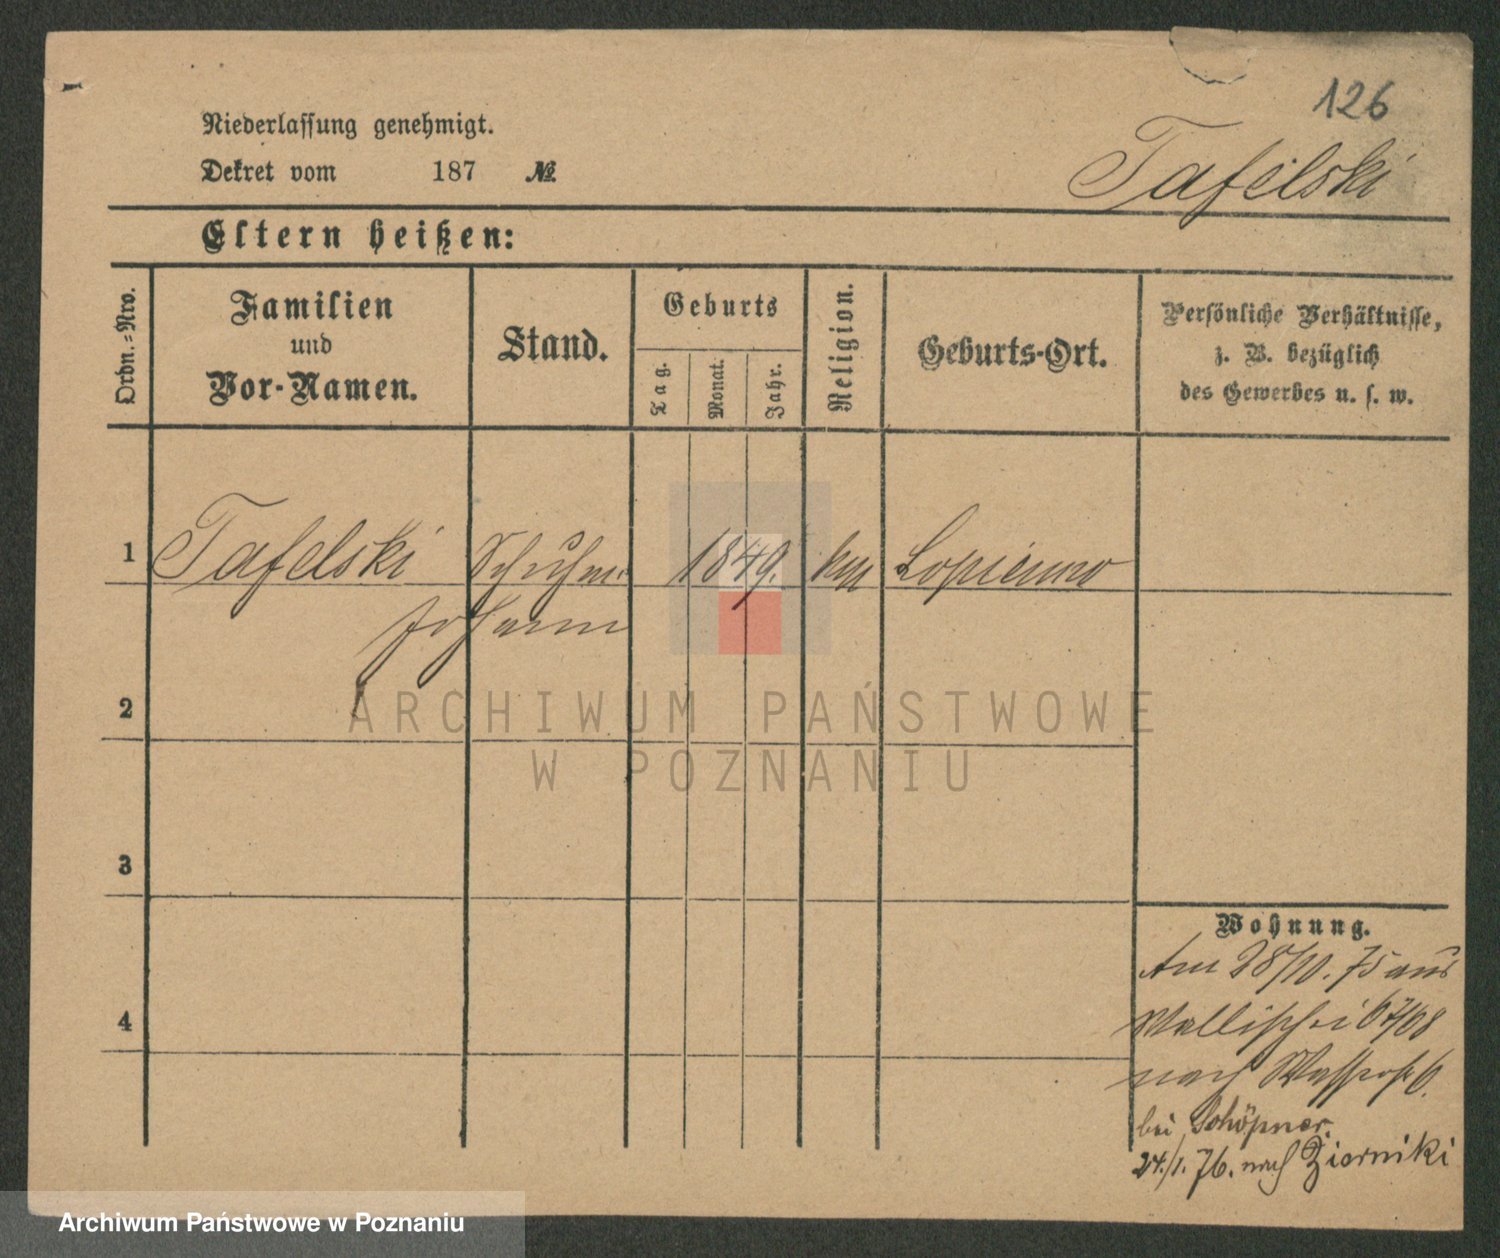 126
Niederlassung genehmigt.
Dekret vom 187 №
Tafelski
Eltern heißen:
Ordn.-Nro.
Familien
und
Vor-Namen.
Stand.
Geburts
Tag.
Monat.
Jahr.
Religion.
Geburts-Ort.
Persönliche Verhältnisse,
z. B. bezüglich
des Gewerbes u. s. w.
1 Tafelski Schuhm. 1849. Lopienno
Johann
2
ARCHIWUM PAŃSTWOWE
W POZNANIU
3
Wohnung.
Am 28/10. 75 aus
Wallischei 67/68
4
nach 6.
bei Schöpner.
24./1. 76. nach Zierniki
Archiwum Państwowe w Poznaniu